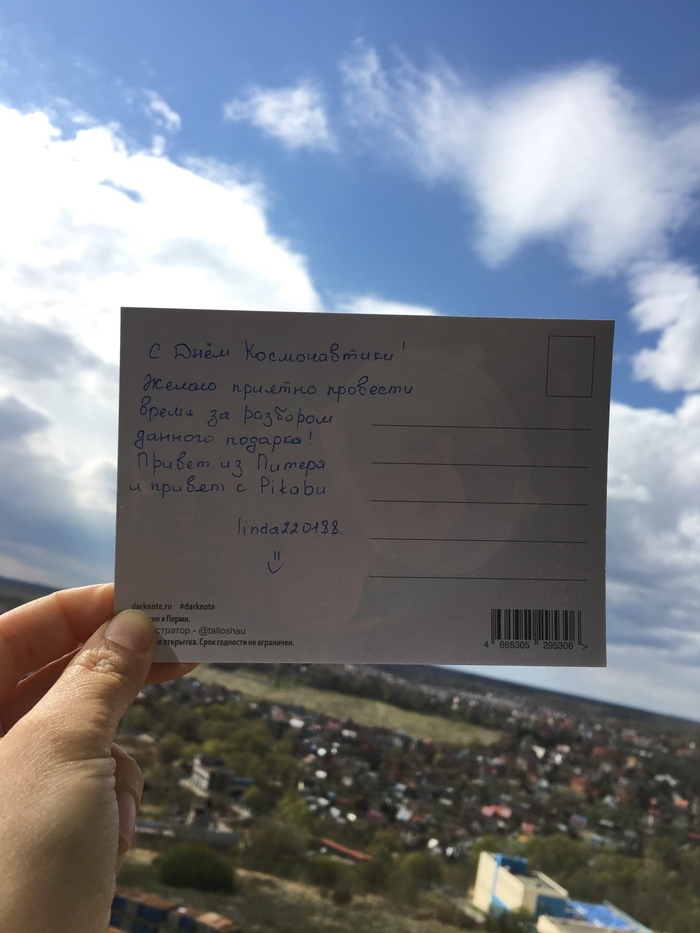 С Днём Космонавтики!
Желаю приятно провести
время за разбором
данного подарка!
Привет из Питера
и привет с Pikabu
linda220188.
darknote.ru #darknote
но в Перми.
стратор - @talloshau
открытка. Срок годности не ограничен.
4 665305 295306 >